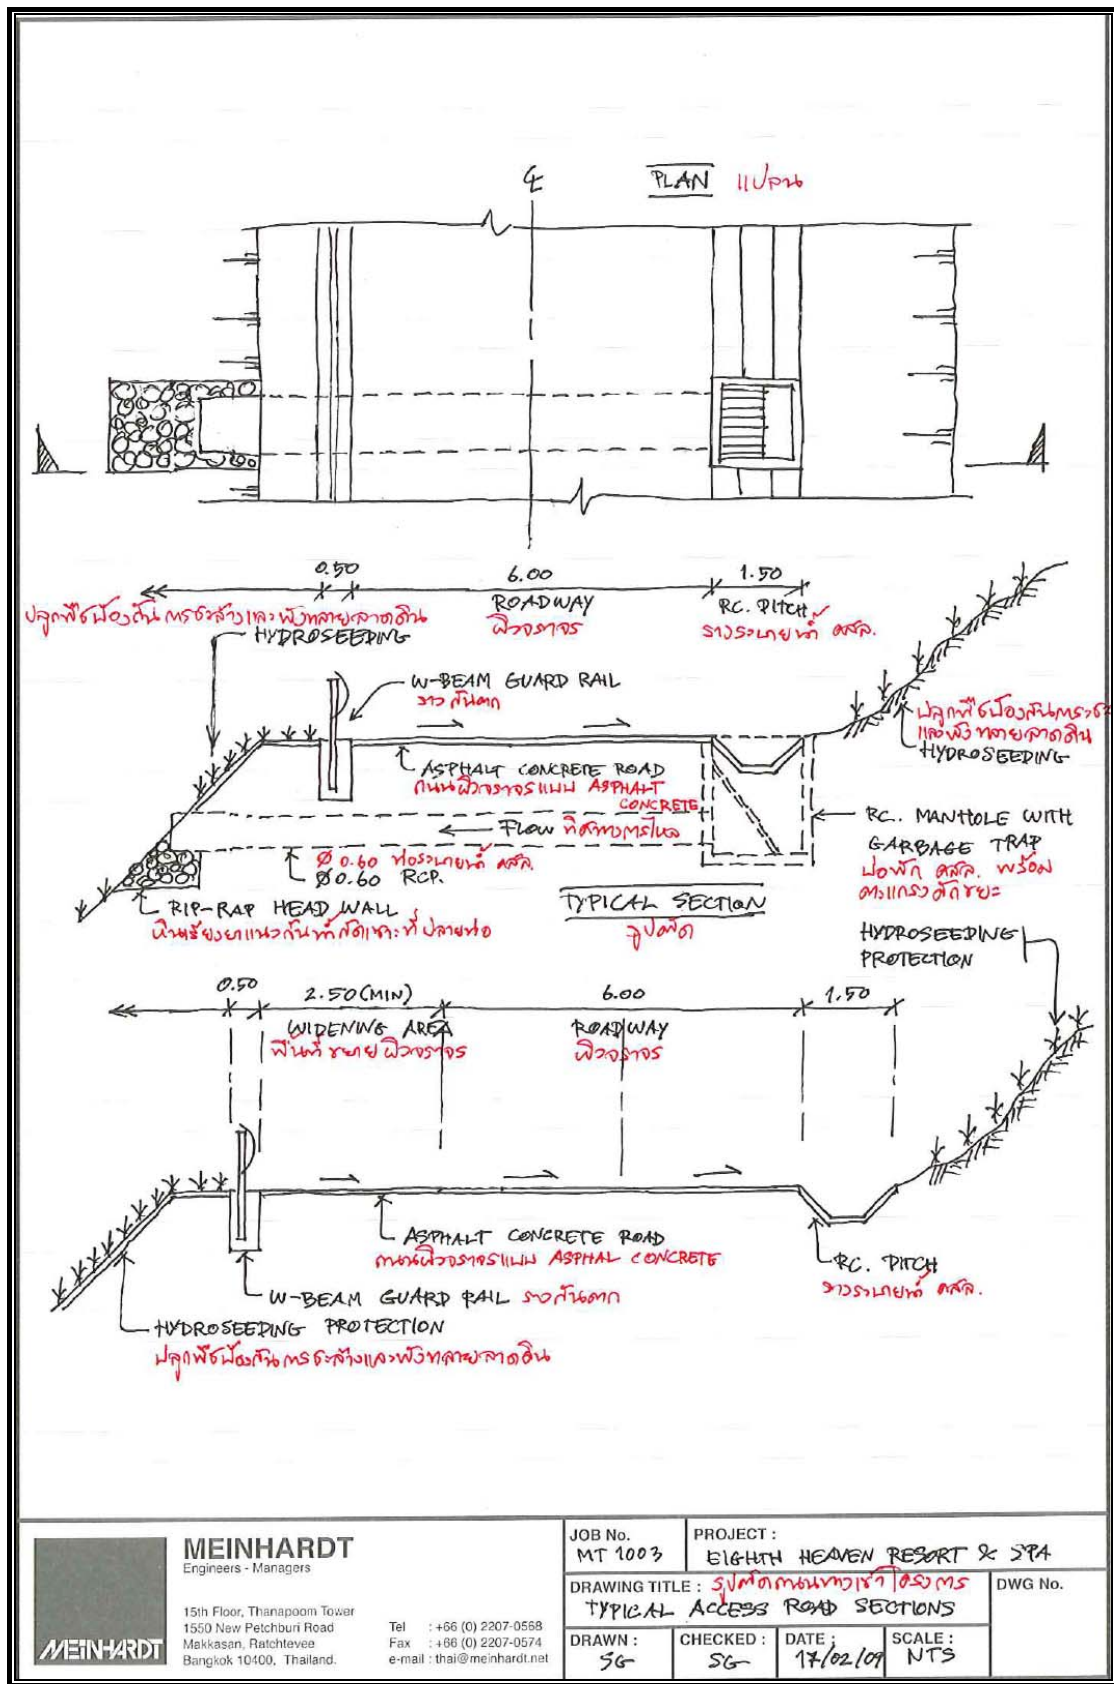 ℄
PLAN แปลน
0.50 6.00 1.50
ROADWAY
ผิวจราจร
RC. DITCH
รางระบายน้ำ คสล.
ปลูกพืชป้องกันการชะล้างและพังทลายลาดดิน
HYDROSEEDING
W-BEAM GUARD RAIL
ราวกันตก
ASPHALT CONCRETE ROAD
ถนนผิวจราจรแบบ ASPHALT
CONCRETE
ปลูกพืชป้องกันการชะ
และพังทลายลาดดิน
HYDROSEEDING
FLOW ทิศทางการไหล
Ø 0.60 ท่อระบายน้ำ คสล.
Ø 0.60 RCP.
RC. MANHOLE WITH
GARBAGE TRAP
บ่อพัก คสล. พร้อม
ตะแกรงดักขยะ
RIP-RAP HEAD WALL
หินเรียงยาแนวกันน้ำกัดเซาะที่ปลายท่อ
TYPICAL SECTION
รูปตัด
HYDROSEEDING
PROTECTION
0.50 2.50(MIN) 6.00 1.50
WIDENING AREA
พื้นที่ขยายผิวจราจร
ROADWAY
ผิวจราจร
ASPHALT CONCRETE ROAD
ถนนผิวจราจรแบบ ASPHAL CONCRETE
RC. DITCH
รางระบายน้ำ คสล.
W-BEAM GUARD RAIL ราวกันตก
HYDROSEEDING PROTECTION
ปลูกพืชป้องกันการชะล้างและพังทลายลาดดิน
MEINHARDT
MEINHARDT
Engineers - Managers
15th Floor, Thanapoom Tower
1550 New Petchburi Road
Makkasan, Ratchtevee
Bangkok 10400, Thailand.
Tel : +66 (0) 2207-0568
Fax : +66 (0) 2207-0574
e-mail : thai@meinhardt.net
JOB No.
MT 1003
PROJECT :
EIGHTH HEAVEN RESORT & SPA
DRAWING TITLE : รูปตัดถนนทางเข้าโครงการ
TYPICAL ACCESS ROAD SECTIONS
DWG No.
DRAWN :
SG
CHECKED :
SG
DATE :
17/02/09
SCALE :
NTS